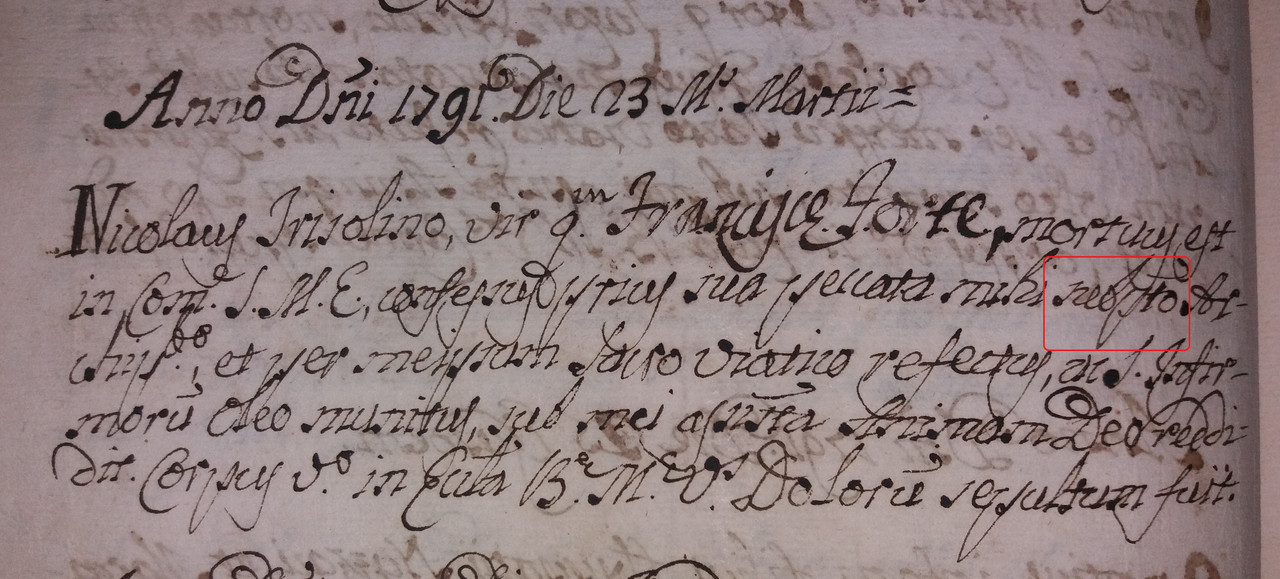 Anno Dñi 1791. Die 23 M.s Martii =
Nicolaus Trisolino, vir q.m Francisce Forte, mortuus est
in Com. S. M. E., confessus prius sua peccata mihi Ar-
et per meipsum Sacro Viatico refectus, ac S. Infir-
morũ Oleo munitus, sub mei Animam Deo reddi-
dit. Corpus v.o in Ecclã B.e M.e V.s Dolorũ sepultum fuit.